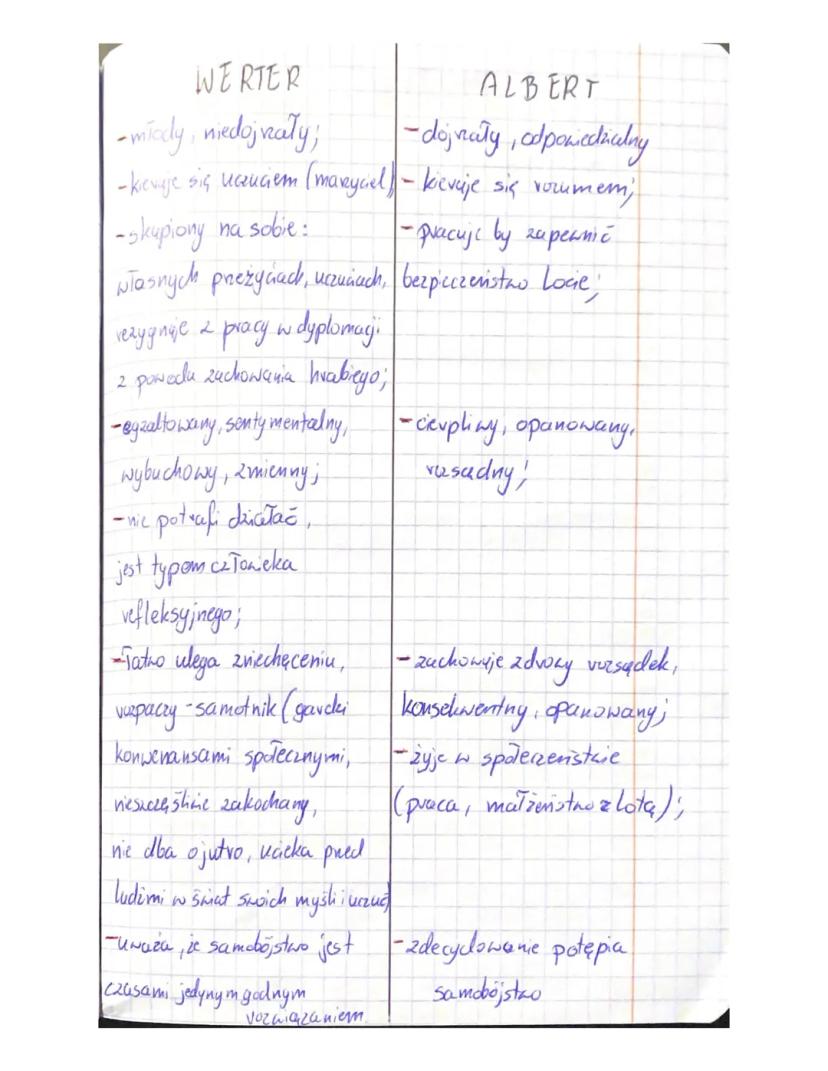 WERTER
- młody, niedojrzały;
- kieruje się uczuciem (marzyciel)
- skupiony na sobie:
własnych przeżyciach, uczuciach,
rezygnuje z pracy w dyplomacji
z powodu zachowania hrabiego;
- egzaltowany, sentymentalny,
wybuchowy, zmienny;
- nie potrafi działać,
jest typem człowieka
refleksyjnego;
- łatwo ulega zniechęceniu,
rozpaczy - samotnik (gardzi
konwenansami społecznymi,
nieszczęśliwie zakochany,
nie dba o jutro, ucieka przed
ludźmi w świat swoich myśli i uczuć)
- uważa, że samobójstwo jest
czasami jedynym godnym
rozwiązaniem
ALBERT
- dojrzały, odpowiedzialny
- kieruje się rozumem;
- pracuje by zapewnić
bezpieczeństwo Locie;
- cierpliwy, opanowany,
rozsądny;
- zachowuje zdrowy rozsądek,
konsekwentny, opanowany;
- żyje w społeczeństwie
(praca, małżeństwo z Lotą);
- zdecydowanie potępia
samobójstwo